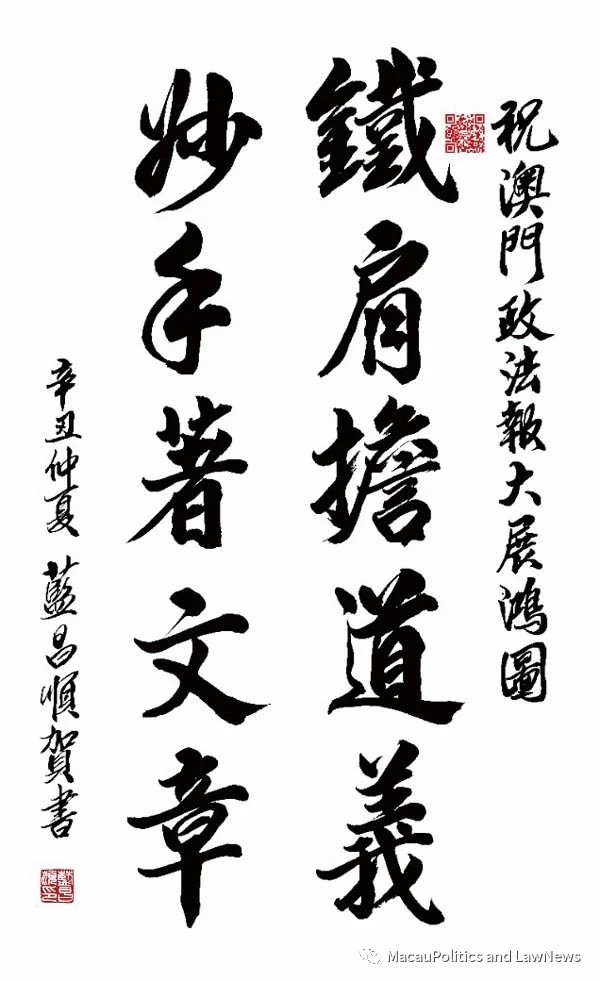 祝澳門政法報大展鴻圖
鐵肩擔道義
妙手著文章
辛丑仲夏 藍昌順賀書
MacauPolitics and LawNews